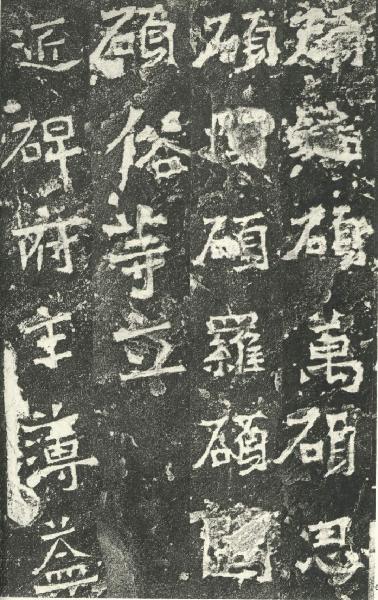 碩萬碩思
碩碩羅碩
碩俗等立
近碑府主薄益